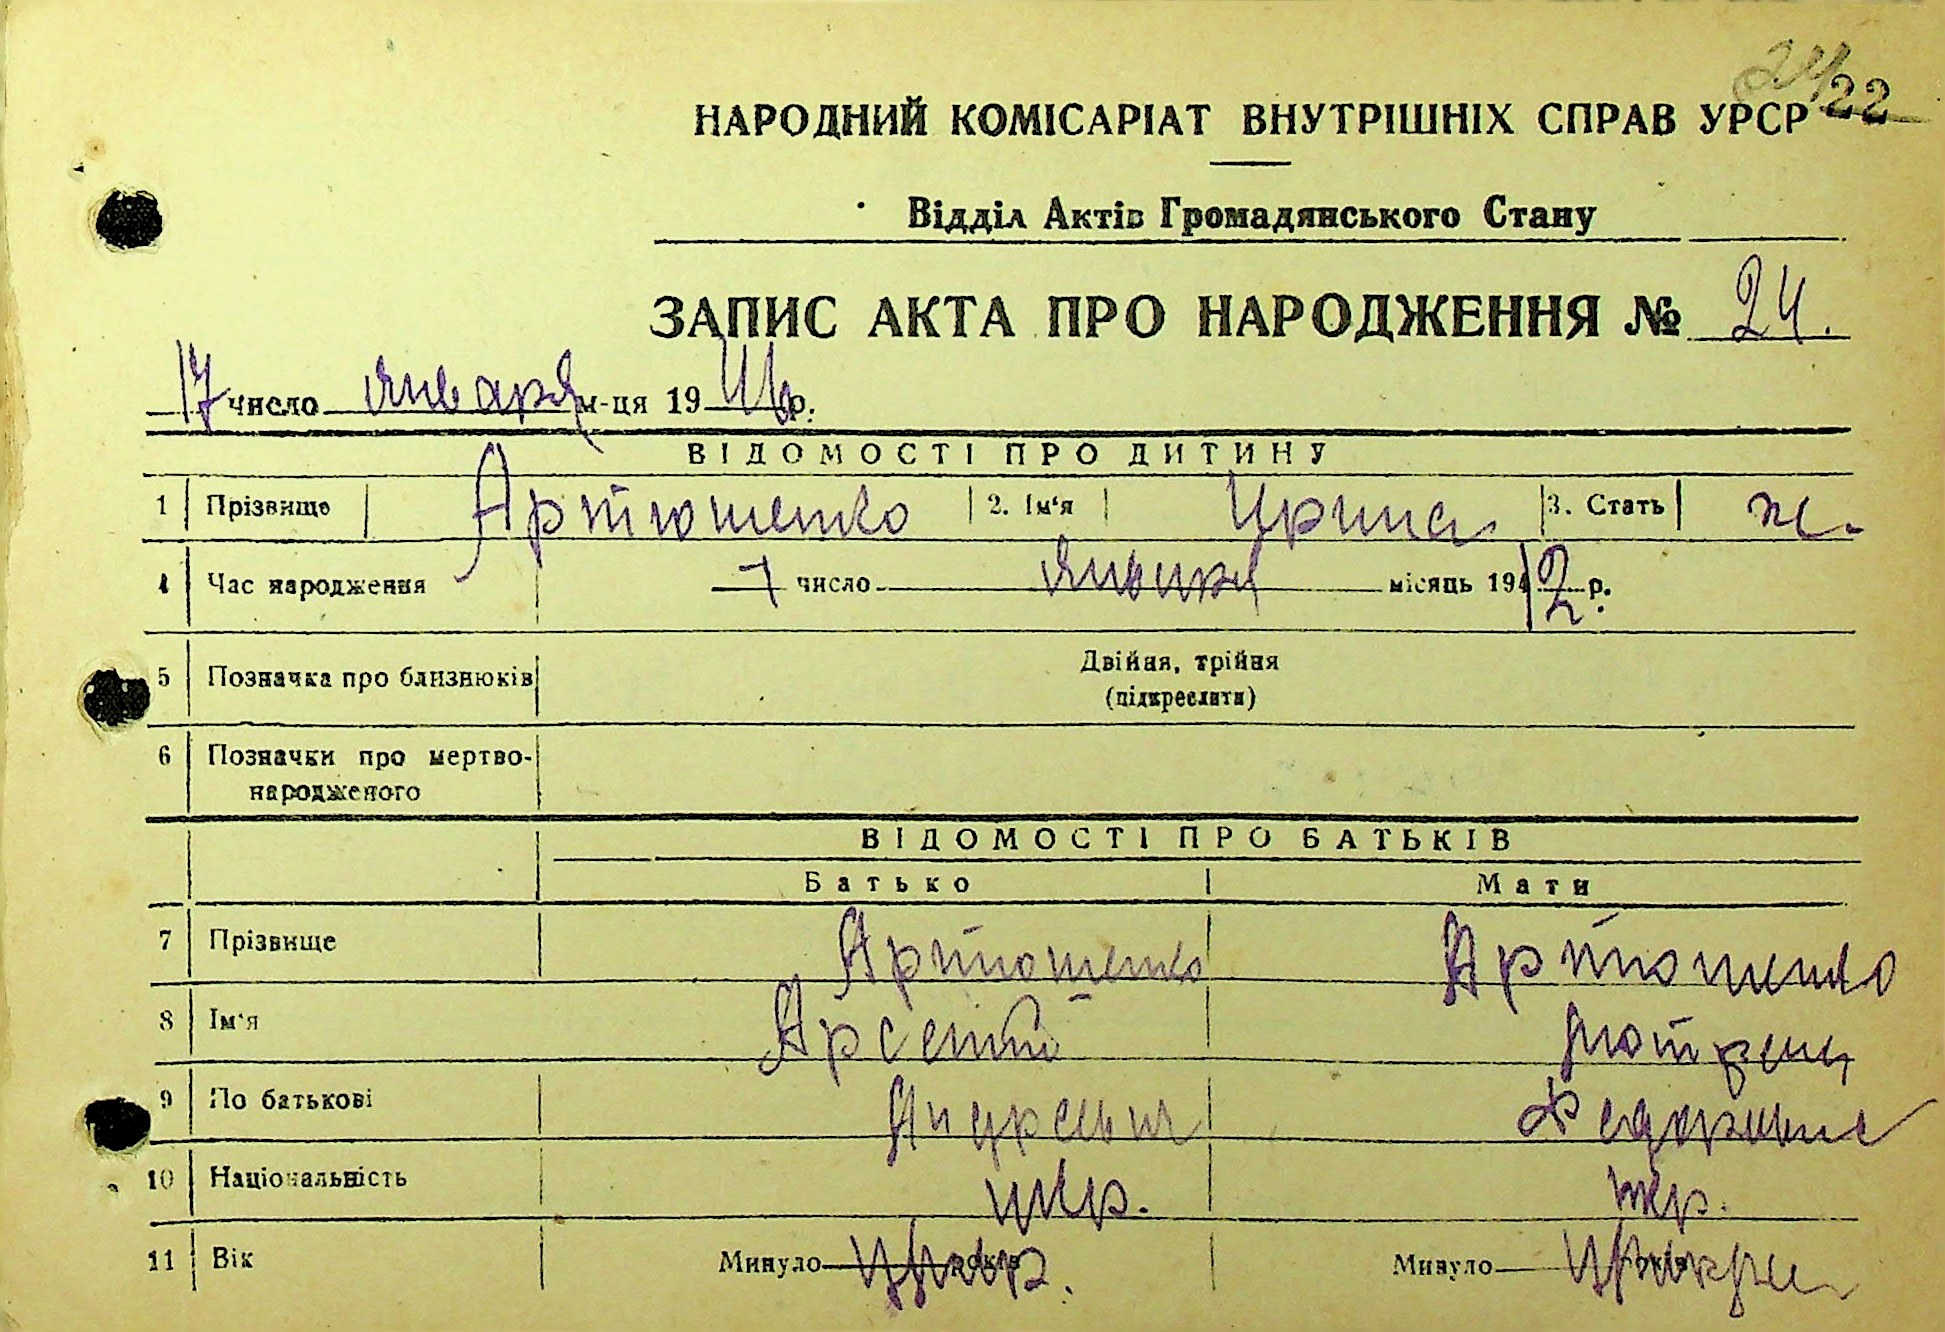 24 22
НАРОДНИЙ КОМІСАРІАТ ВНУТРІШНІХ СПРАВ УРСР
Відділ Актів Громадянського Стану
ЗАПИС АКТА ПРО НАРОДЖЕННЯ № 24.
17 число января м-ця 1946 р.
ВІДОМОСТІ ПРО ДИТИНУ
1 Прізвище Артюшенко 2. Ім'я Ирина 3. Стать ж.
4 Час народження 7 число января місяць 1942 р.
5 Позначка про близнюків Двійня, трійня
(підкреслити)
6 Позначки про мертво-
народженого
ВІДОМОСТІ ПРО БАТЬКІВ
Батько Мати
7 Прізвище Артюшенко Артюшенко
8 Ім'я Арсентий Мотрена
9 По батькові Андреевич Федоровна
10 Національність укр. укр.
11 Вік Минуло років Минуло років